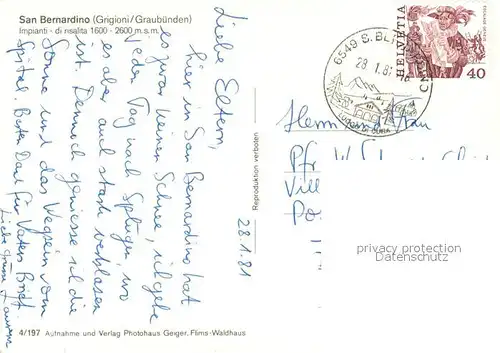 San Bernardino (Grigioni/Graubünden)
Impianti - di risalita 1600 - 2600 m.s.m.
Liebe Eltern,
hier in San Bernardino hat
es zwar keinen Schnee, ich gehe
jeden Tag nach Splügen, wo
es aber auch stark verblasen
ist. Dennoch geniesse ich die
Sonne und das Wegsein vom
Spital. Besten Dank für Vaters Brief.
Liebe Grüsse
28.1.81
Reproduktion verboten
4/197 Aufnahme und Verlag Photohaus Geiger, Flims-Waldhaus
6549 S. BERNARDINO
28.1.81
LUOGO DI CURA
HELVETIA
40
Herrn und Frau
Pfr
Vill
Po
privacy protection
Datenschutz